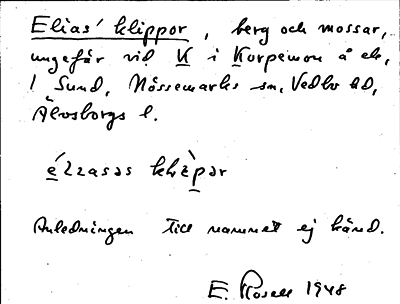 Elias' klippor, berg och mossar,
ungefär vid K i Korpemon å ek,
1 Sund, Nössemarks sn, Vedbo hd,
Älvsborgs l.
Anledningen till namnet ej känd.
E. Rosell 1948